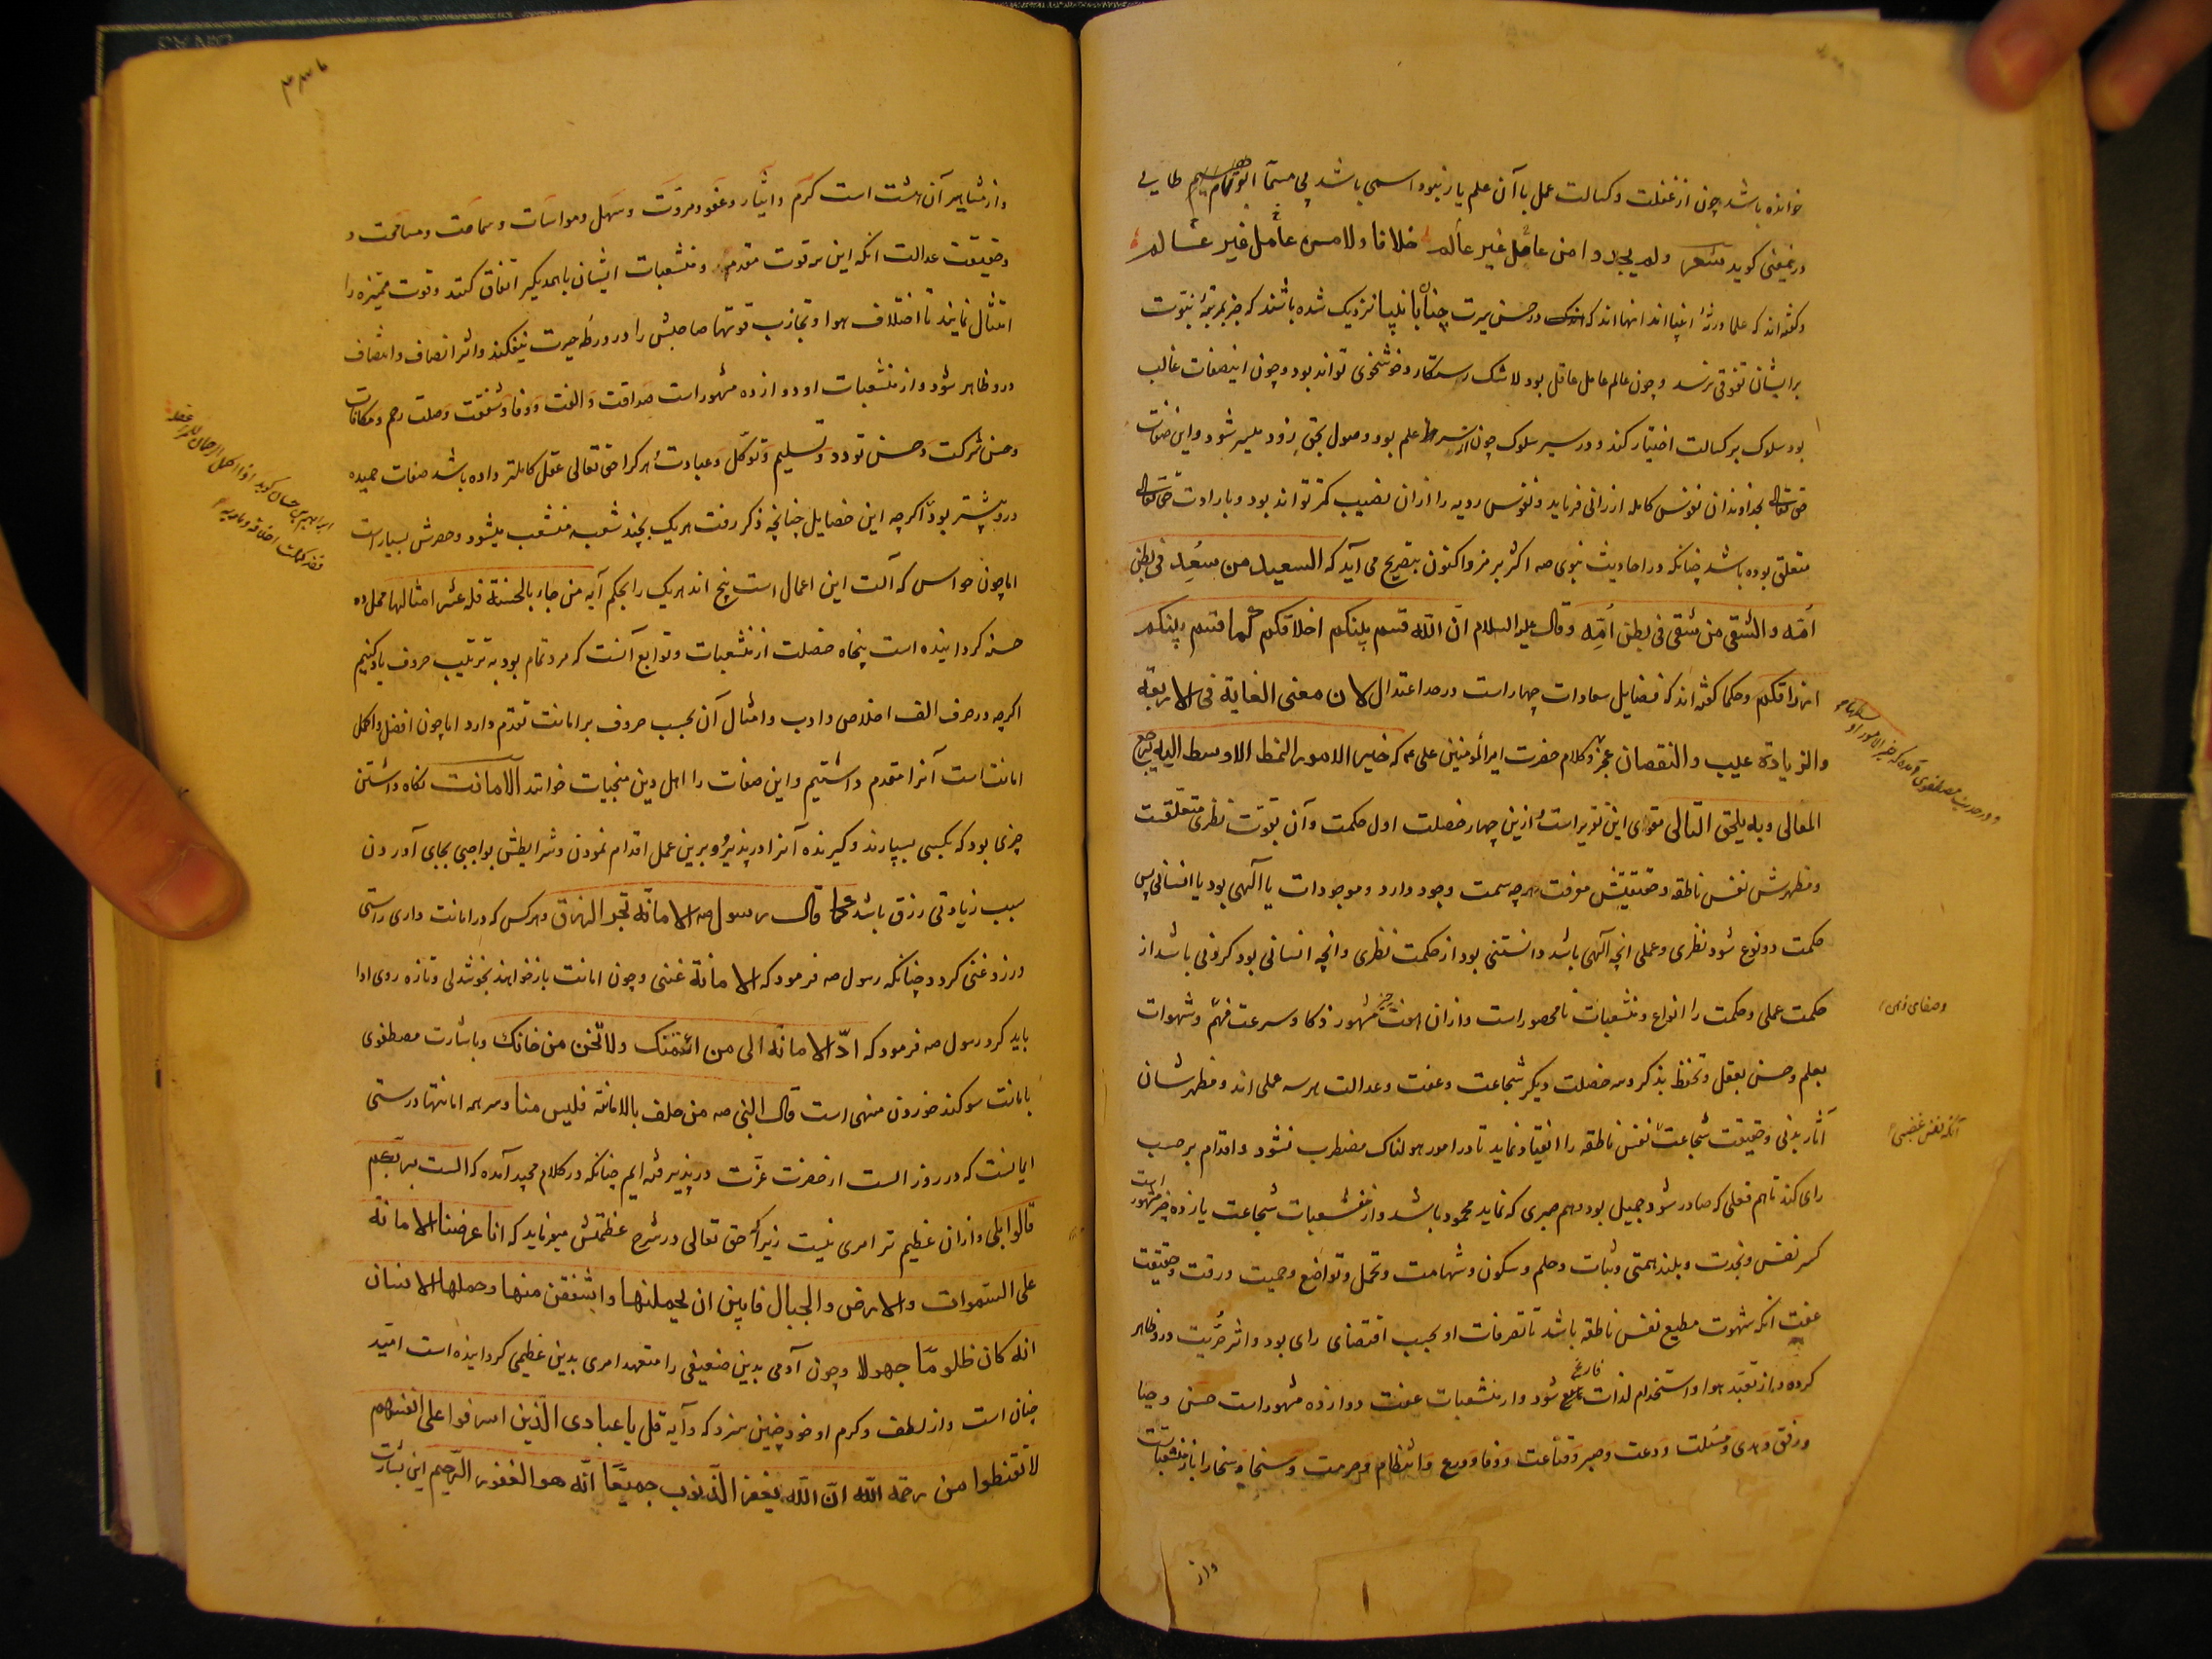 خوانده باشد چون از غفلت و کسالت عمل با آن علم یار نبود اسمی باشد بی مسمّا ابو تمام طایی
درینمعنی کوید شعر ولم یجدوا من عامل غیر عالم خلافا ولا من عامل غیر عالم
و کفته اند که علما ورثهٔ انبیا اند انها اند که در حسن سیرت چنان بانبیا نزدیک شده باشند که جز بمرتبهٔ نبوت
برایشان تفوقی نرسد و چون عالم عامل عاقل بود لاشک رستکار و خوشخوی تواند بود و چون اینصفات غالب
بود سلوک بر کسالت اختیار کند و در سیر سلوک چون از شرط علم بود وصول بحق زود میسر شود و این صفات
حق تعالی بخداوندان نفوس کامله ارزانی فرماید و نفوس رویه را ازان نصیب کمتر تواند بود و بارادت حق تعالی
متعلق بوده باشد چنانکه در احادیث نبوی صه اکثر بر مز و اکنون بتصریح می آید که السعید من سُعِد فی بطن
اُمّه والشقی من شقی فی بطن اُمِّه وقال علیه السلام انّ اللّه قسم بینکم اخلاقکم کما قسم بینکم
ارزاقکم و حکما کفته اند که فضایل سعادات چهار است در حد اعتدال لان معنی الغایة فی الاربعة
والزیادة عیب والنقصان عجز و کلام حضرت امیرالمومنین علی عم که خیر الامور النمط الاوسط الیه یرجع
الغالی وبه یلحق التالی مقوی این تقریر است و ازین چهار خصلت اول حکمت و آن بقوت نظری متعلقست
و مظهرش نفس ناطقه و حقیقتش معرفت هر چه سمت وجود دارد و موجودات یا آلهی بود یا انسانی پس
حکمت دو نوع شود نظری و عملی انچه آلهی باشد دانستنی بود از حکمت نظری و انچه انسانی بود کردنی باشد از
حکمت عملی و حکمت را انواع و منشعبات نامحصور است و ازان هفت چیز مشهور ذکا و سرعت فهم و شهوات
وصفای ذهن
بعلم و حسن بعقل و تحفظ بذکر و سه خصلت دیکر شجاعت و عفت و عدالت هر سه عملی اند و مظهر شان
آثار بدنی و حقیقت شجاعت نفس ناطقه را انقیاد نماید تا در امور هولناک مضطرب نشود و اقدام بر حسب
آنکه نفس غضبی
رای کند تا هم فعلی که صادر شود جمیل بود و هم صبری که نماید محمود باشد و از منشعبات شجاعت یازده چیز مشهور است
کبر نفس و نجدت و بلند همتی و ثبات و حلم و سکون و شهامت و تحمل و تواضع و حمیت و رقت و حقیقت
عفت انکه شهوت مطیع نفس ناطقه باشد تا تصرفات او بحسب اقتضای رای بود و اثر حرّیت درو ظاهر
کرده و از تعبّد هوا و استخدام لذات فارغ شود و از منشعبات عفت دوازده مشهور است حسن و حیا
ورفق و هدی و مسئلت و دعت و صبر و قناعت و وفا و ورع و انتظام و حرمت و سخا و سخا را باز منشعبات
و از
و در حدیث مصطفوی آمده که خیر الامور اوسطها
و از مشاهیر آن هشت است کرم و ایثار و عفو و مروت و سهل و مواسات و سماحت و مسامحت و
و حقیقت عدالت انکه این سه قوت متقدم و منشعبات ایشان باهمدیکر اتفاق کنند و قوت ممیزه را
امتثال نمایند تا اختلاف هوا و تجاذب قوتها صاحبش را در ورطه حیرت نیفکند و اثر انصاف و انتصاف
درو ظاهر شود و از منشعبات او دوازده مشهور است صداقت و الفت و وفا و شفقت و صلت رحم و مکافات
و حسن شرکت و حسن تودد و تسلیم و توکل و عبادت هر کرا حق تعالی عقل کاملتر داده باشد صفات حمیده
درو بیشتر بود اکرچه این خصایل چنانچه ذکر رفت هر یک بچند شعبه منشعب میشود و حصرش بسیار است
اما چون حواس که آلت این اعمال است پنج اند هر یک را بحکم آیه من جاء بالحسنة فله عشر امثالها محل ده
حسنه کردانیده است پنجاه خصلت از منشعبات و توابع آنست که مرد تمام بود به ترتیب حروف یاد کنیم
اکرچه در حرف الف اخلاص و ادب و امثال آن بحسب حروف بر امانت تقدم دارد اما چون افضل و اکمل
امانت است آنرا متقدم داشتیم و این صفات را اهل دین منجیات خوانند الامانت نکاه داشتن
چیزی بود که بکسی بسپارند و کیرنده آنرا در پذیرد و برین عمل اقدام نمودن و شرایطش بواجبی بجای آوردن
سبب زیادتی رزق باشد کما قال رسول صه الامانة تجر الرزق و هر کس که در امانت داری راستی
ورزد غنی کردد چنانکه رسول صه فرمود که الامانة غنی و چون امانت باز خواهند بخوشدلی و تازه روی ادا
باید کرد رسول صه فرمود که ادّ الامانة الی من ائتمنک ولا تخن من خانک و باشارت مصطفوی
بامانت سوکند خوردن منهی است قال النبی صه من حلف بالامانة فلیس منا و سر همه امانتها درستی
ایمانست که در روز الست از حضرت عزت در پذیرفته ایم چنانکه در کلام مجید آمده که الست بربّکم
قالوا بلی و ازان عظیم تر امری نیست زیرا که حق تعالی در شرح عظمتش میفرماید که انا عرضنا الامانة
علی السموات والارض والجبال فابین ان یحملنها واشفقن منها وحملها الانسان
انه کان ظلومًا جهولا و چون آدمی بدین ضعیفی را متعهد امری بدین عظیمی کردانیده است امّید
چنان است و از لطف و کرم او خود چنین سزد که و آیه قل یا عبادی الّذین اسرفوا علی انفسهم
لا تقنطوا من رحمة اللّه انّ اللّه یغفر الذّنوب جمیعًا انّه هو الغفور الرّحیم این بشارت
ابراهیم بن حسان کوید اذا اکمل الرحمن للمرء عقله
فقد کملت اخلاقه و مآربه